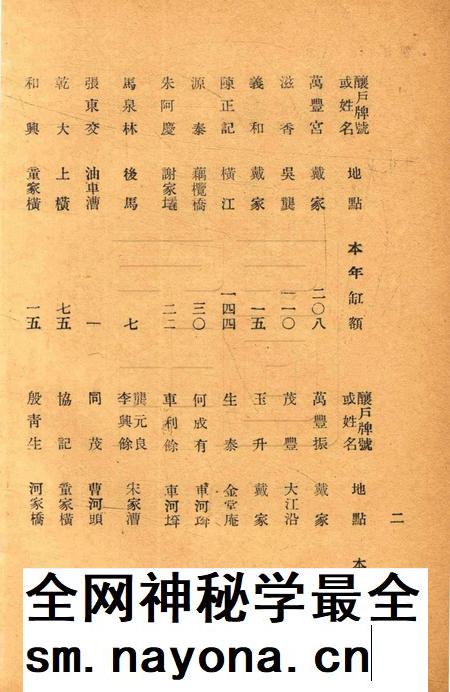 二
釀戶牌號或姓名 地點 本年缸額 釀戶牌號或姓名 地點 本
萬豐宮 戴家 二〇八 萬豐振 戴家
滋香 吳龔 一一〇 茂豐 大江沿
義和 戴家 一五 玉升 戴家
陳正記 橫江 一四四 生泰 金堂庵
源泰 藕欖橋 三〇 何成有 車河
朱阿慶 謝家 二二 車利餘 車河
馬泉林 後馬 七 龔元良 李興餘 宋家漕
張東交 油車漕 一 同茂 曹河頭
乾大 上橫 七五 協記 童家橫
和興 童家橫 一五 殷青生 河家橋
全网神秘学最全
sm.nayona.cn